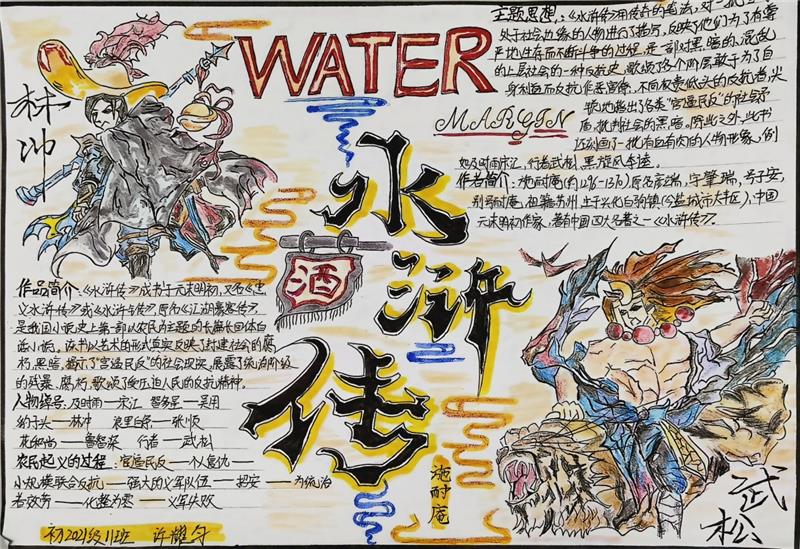 WATER
MARGIN
水
浒
传
酒
施耐庵
林冲
武松
主题思想:《水浒传》用传奇的笔法,对一批
处于社会边缘的人物进行了描写,反映了他们为了有尊
严地生存而不断斗争的过程,是一部对黑暗的、混乱
的上层社会的一种反抗史,歌颂了各个阶层敢于为了自
身利益而反抗作恶官僚,不向权贵低头的反抗者,尖
锐地指出了各类"官逼民反"的社会矛
盾,批判社会的黑暗,除此之外,此书
还刻画了一批有血有肉的人物形象,例
如及时雨宋江,行者武松,黑旋风李逵。
作者简介:施耐庵(约1296-1370)原名彦端,字肇瑞,号子安,
别号耐庵,祖籍苏州,生于兴化白驹镇(今盐城市大丰区),中国
元末明初作家,著有中国四大名著之一《水浒传》。
作品简介:《水浒传》成书于元末明初,又名《忠
义水浒传》或《水浒全传》,原名《江湖豪客传》
是我国小说史上第一部以农民为主题的长篇长回体白
话小说,该书以艺术的形式真实反映了封建社会的腐
朽,黑暗,揭示了"官逼民反"的社会现实,展露了统治阶级
的残暴、腐朽,歌颂了受压迫人民的反抗精神。
人物绰号:及时雨—宋江 智多星—吴用
豹子头—林冲 浪里白条—张顺
花和尚—鲁智深 行者—武松
农民起义的过程:官逼民反——个人复仇—
小规模联合反抗——强大的义军队伍——招安——为统治
者效劳——化整为零——义军失败
初2021级11班 许